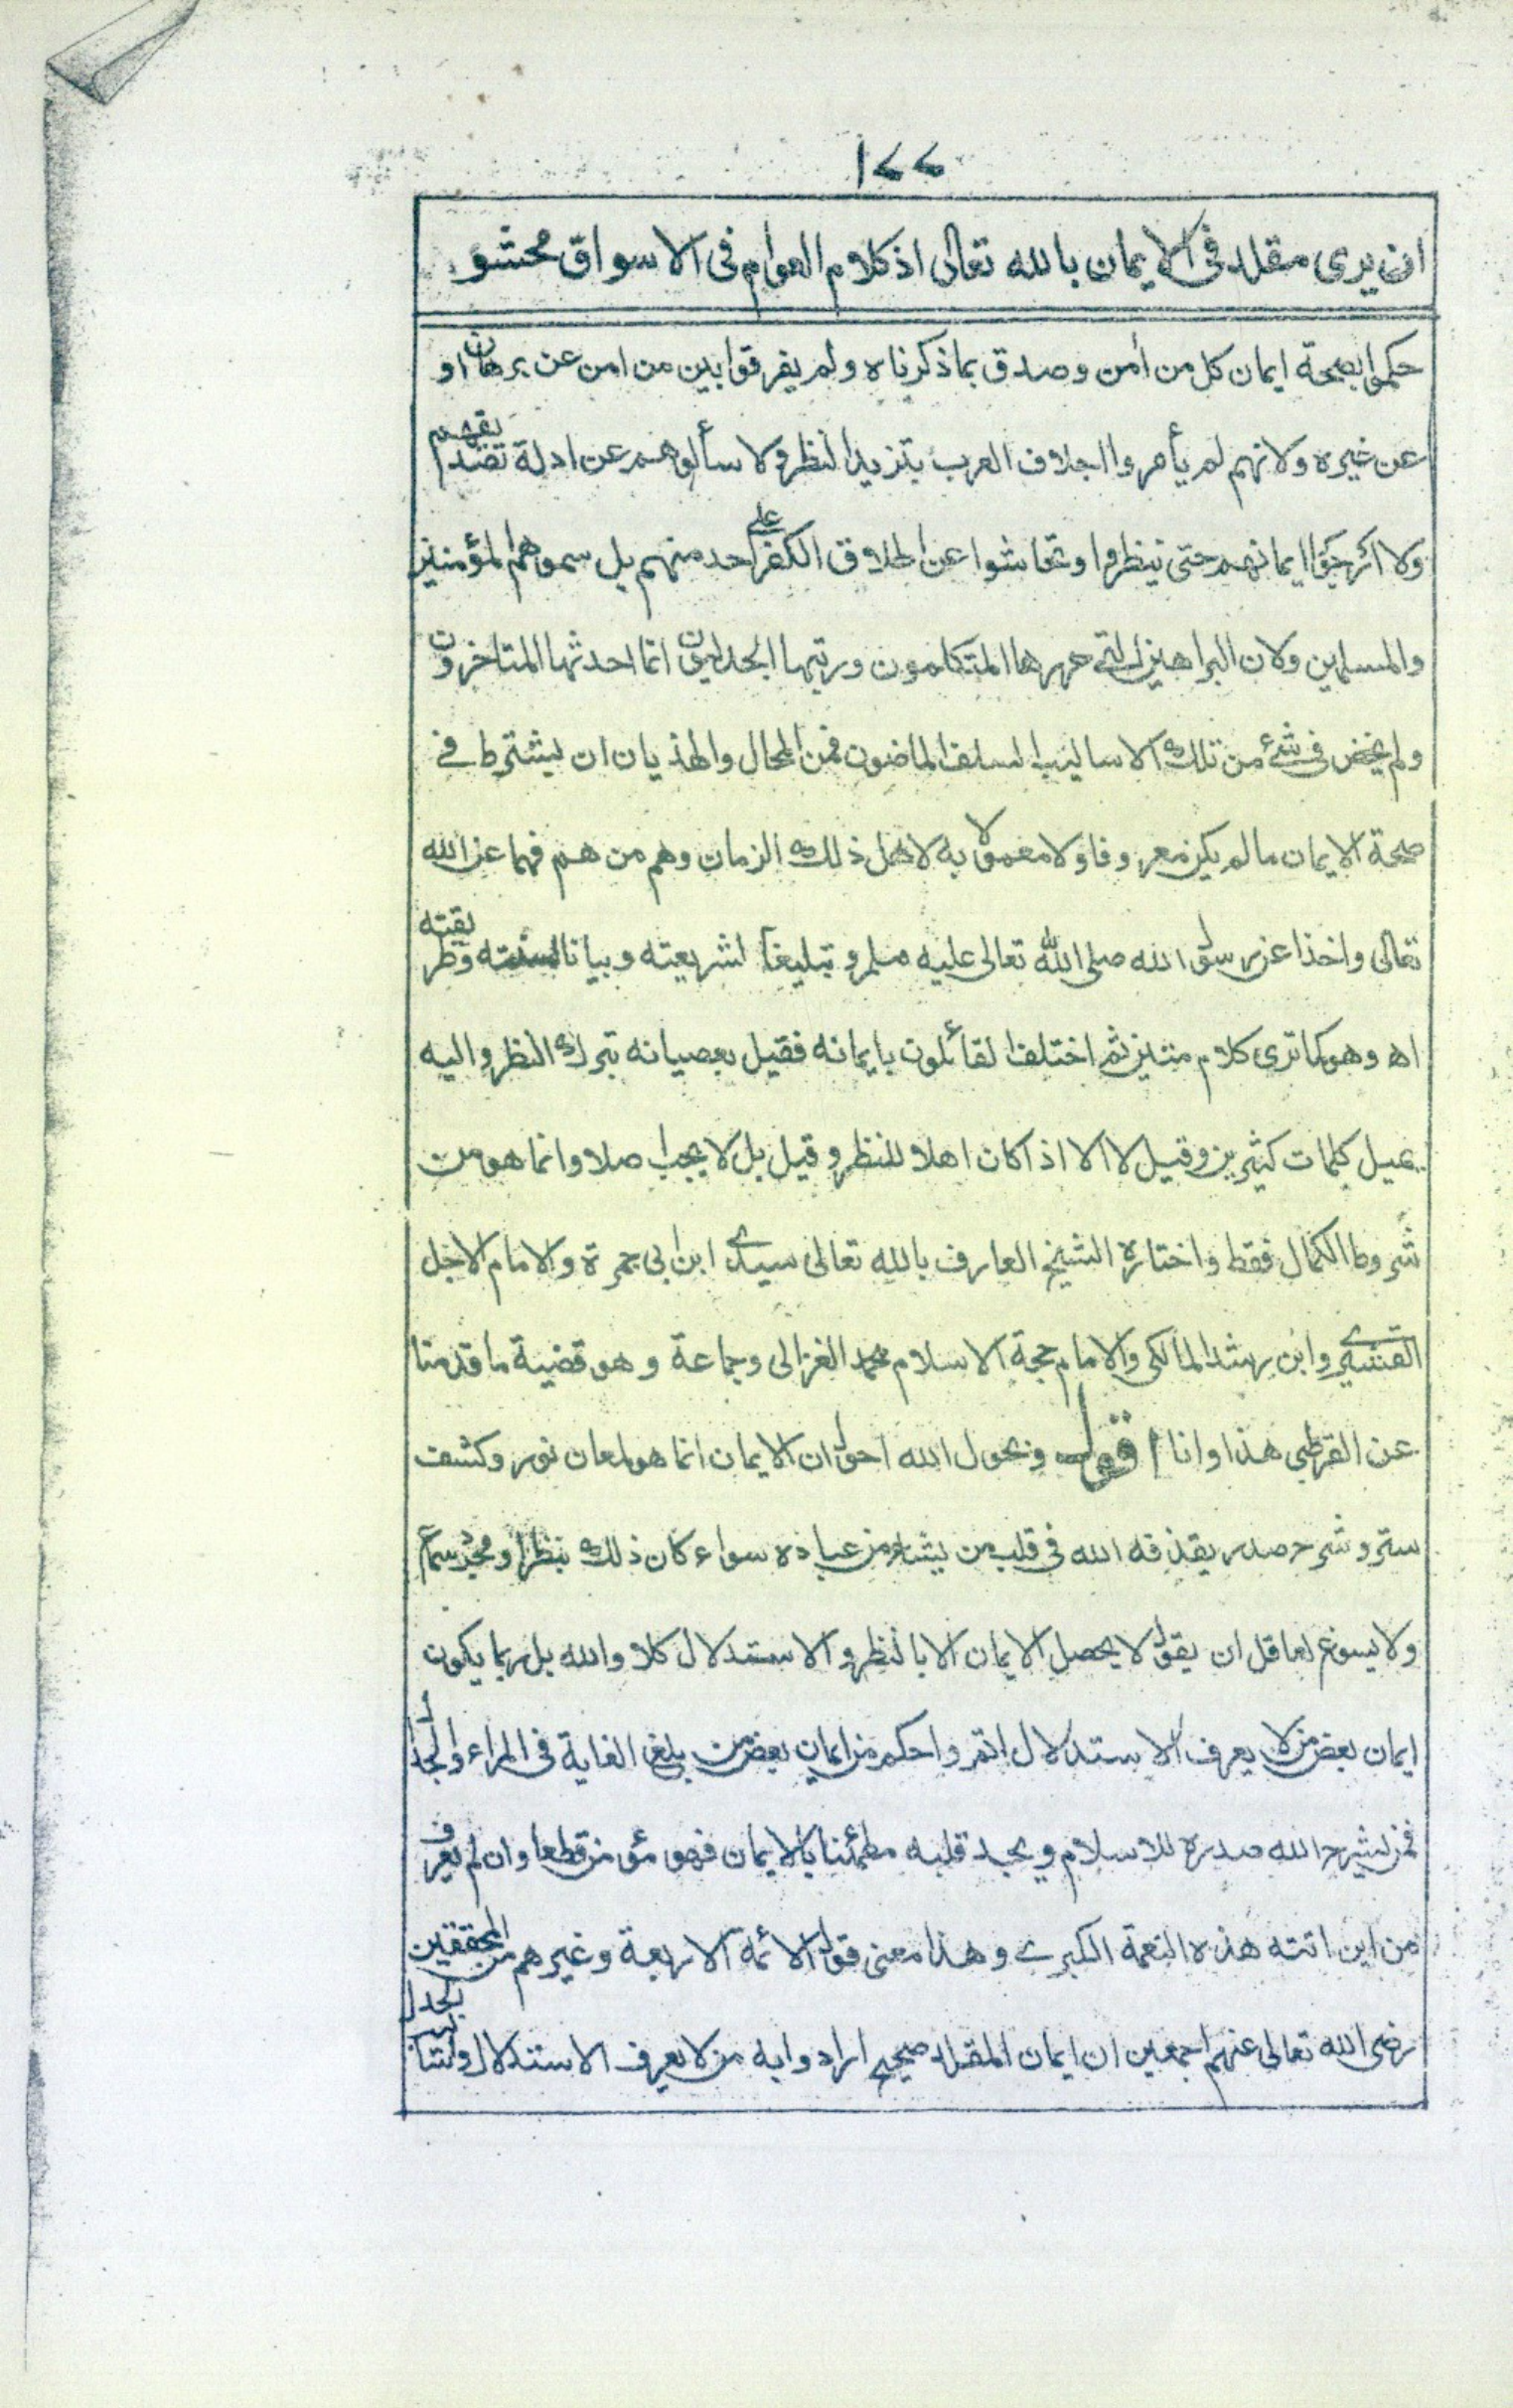 ١٢٢
ان يرى مقلد فى الايمان بالله تعالى اذ كلام العوام فى الاسواق محشو
حكموا بصحة ايمان كل من أمن وصدق بما ذكرناه ولم يفرقوا بين من امن عن برهان او
عن غيره ولانهم لم يأمروا اجلاف العرب بترديد النظر ولا سألوهم عن ادلة تصديقهم
ولا ارجؤا ايمانهم حتى ينظروا وتحاشوا عن اطلاق الكفر على احد منهم بل سموهم المؤمنين
والمسلمين ولان البراهين التي حررها المتكلمون ورتبها الجدليون انما احدثها المتاخرون
ولم يخض فى شئ من تلك الاساليب السلف الماضون فمن المحال والهذيان ان يشترط فى
صحة الايمان ما لم يكن معروفا ولا معمولا به لاهل ذلك الزمان وهم من هم فهما عن الله
تعالى واخذا عن رسول الله صلى الله تعالى عليه وسلم وتبليغا لشريعته وبيانا لسنته وطريقته
اھ وهو كما ترى كلام متين ثم اختلف القائلون بايمانه فقيل بعصيانه بترك النظر واليه
يميل كلمات كثيرين وقيل لا الا اذا كان اهلا للنظر وقيل بل لا يجب اصلا وانما هو من
شروط الكمال فقط واختاره الشيخ العارف بالله تعالى سيدى ابن ابى جمرة والامام الاجل
القشيرى وابن رشد المالكى والامام حجة الاسلام محمد الغزالى وجماعة وهو قضية ما قدمنا
عن القرطبى هذا وانا اقول وبحول الله احول ان الايمان انما هو لمعان نور وكشف
ستر وشرح صدر يقذفه الله فى قلب من يشاء من عباده سواء كان ذلك بنظر او مجرد سماع
ولا يسوغ لعاقل ان يقول لا يحصل الايمان الا بالنظر والاستدلال كلا والله بل ربما يكون
ايمان بعض من لا يعرف الاستدلال اتم واحكم من ايمان بعض من بلغ الغاية فى المراء والجدال
فمن يشرح الله صدره للاسلام ويجد قلبه مطمئنا بالايمان فهو مؤمن قطعا وان لم يعرف
من اين اتته هذه النعمة الكبرى وهذا معنى قول الائمة الاربعة وغيرهم من المحققين
رضى الله تعالى عنهم اجمعين ان ايمان المقلد صحيح ارادوا به من لا يعرف الاستدلال